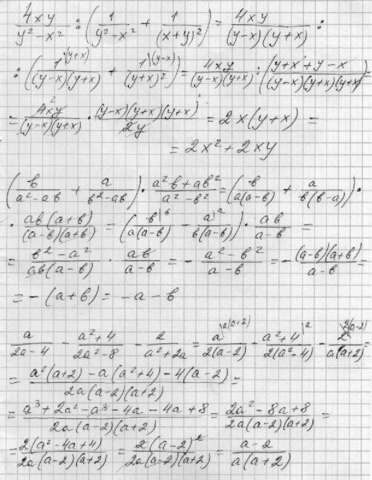 4xy/(y²-x²) : (1/(y²-x²) + 1/(x+y)²) = 4xy/((y-x)(y+x)) :
: (1^\(y+x)/((y-x)(y+x)) + 1^\(y-x)/(y+x)²) = 4xy/((y-x)(y+x)) : (y+x+y-x)/((y-x)(y+x)(y+x)) =
= 4xy/((y-x)(y+x)) · (y-x)(y+x)(y+x)/2y = 2x(y+x) =
= 2x²+2xy
(в/(a²-aв) + a/(в²-aв)) · (a²в+aв²)/(a²-в²) = (в/(a(a-в)) + a/(в(в-a))) ·
· aв(a+в)/((a-в)(a+в)) = (в^\в/(a(a-в)) - a^\a/(в(a-в))) · aв/(a-в) =
= (в²-a²)/(aв(a-в)) · aв/(a-в) = - (a²-в²)/(a-в) = - (a-в)(a+в)/(a-в) =
= -(a+в) = -a-в
a/(2a-4) - (a²+4)/(2a²-8) - 2/(a²+2a) = a^\a(a+2)/(2(a-2)) - (a²+4)^\a/(2(a²-4)) - 2^\2(a-2)/(a(a+2)) =
= (a²(a+2)-a(a²+4)-4(a-2))/(2a(a-2)(a+2)) =
= (a³+2a²-a³-4a-4a+8)/(2a(a-2)(a+2)) = (2a²-8a+8)/(2a(a-2)(a+2)) =
= 2(a²-4a+4)/(2a(a-2)(a+2)) = 2(a-2)²/(2a(a-2)(a+2)) = (a-2)/(a(a+2))